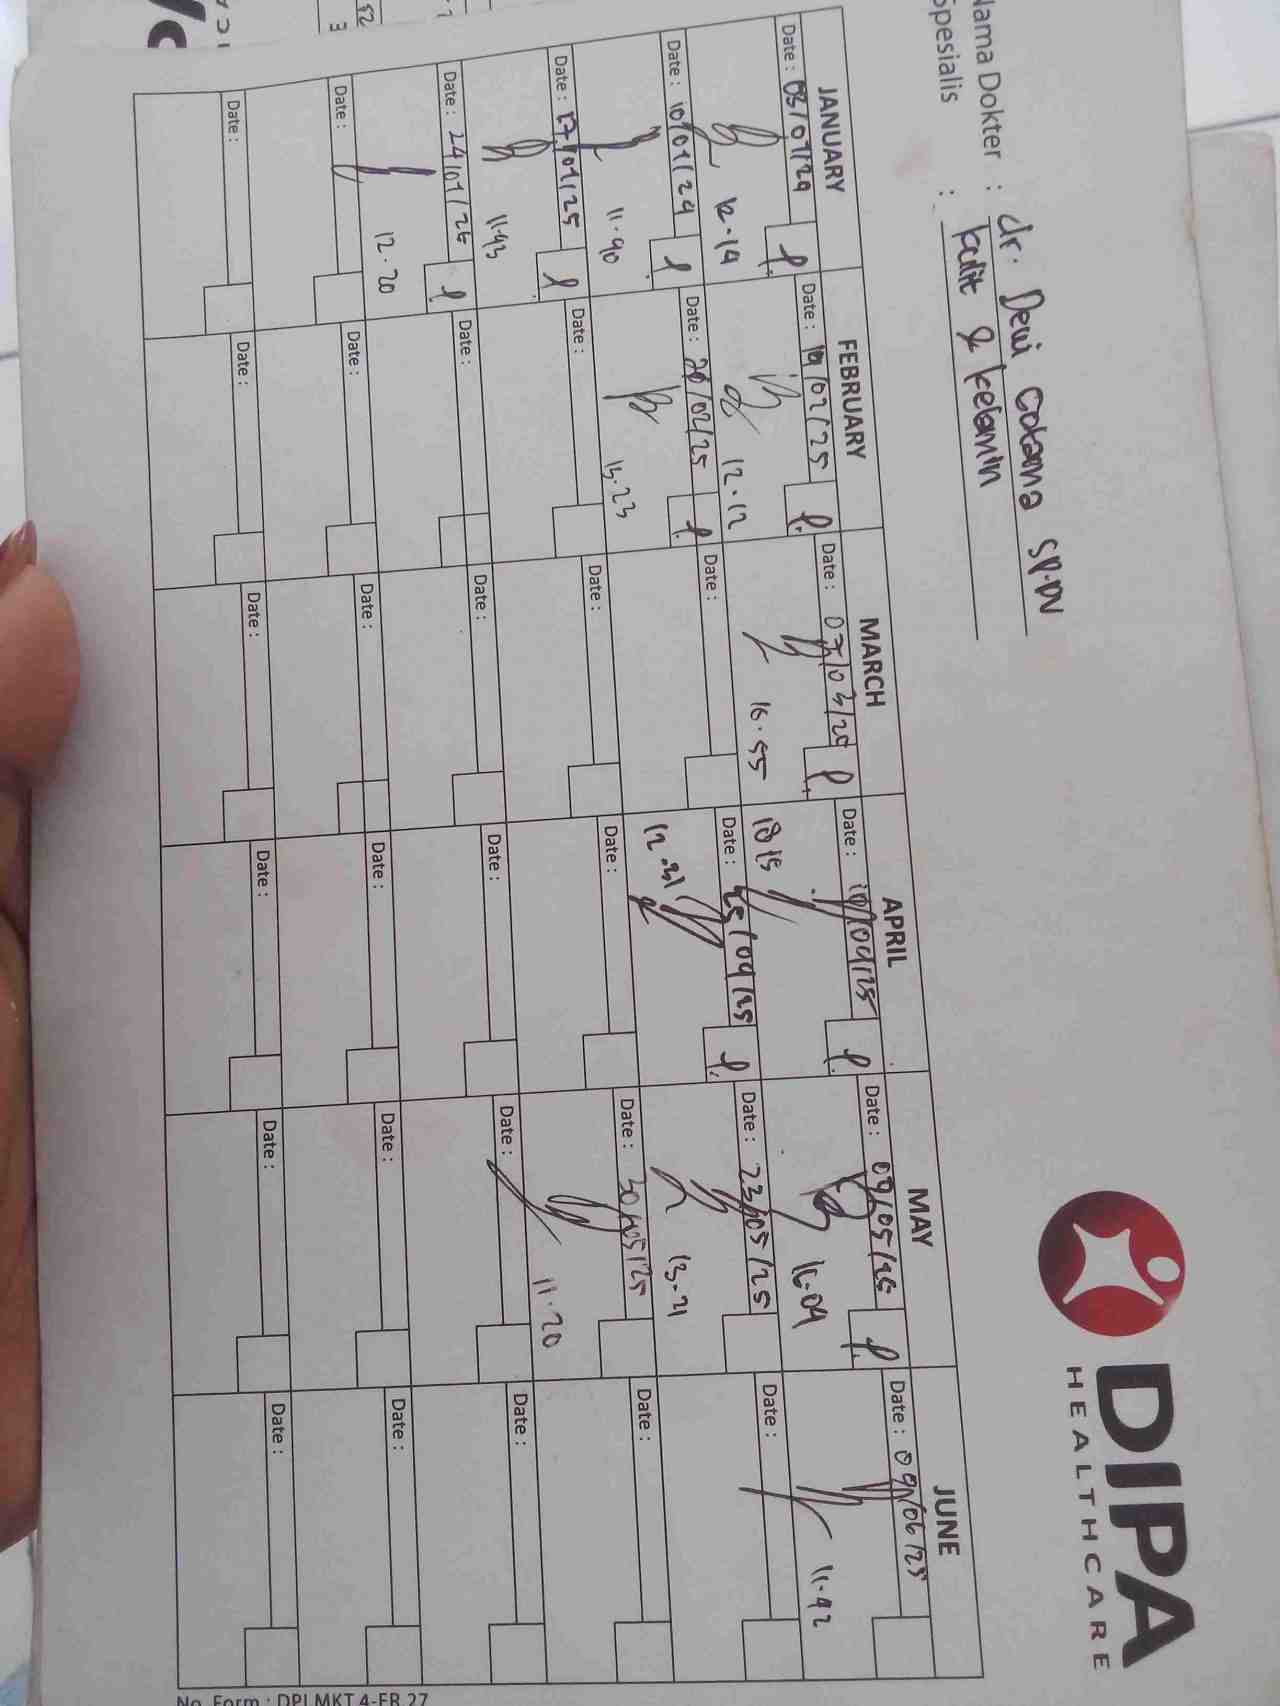 DIPA
HEALTHCARE
Nama Dokter : dr. Dewi cotama SP.DV
Spesialis : kulit & kelamin
JANUARY FEBRUARY MARCH APRIL MAY JUNE
Date : 03/01/24 Date : 19/02/25 Date : 07/03/25 Date : 10/04/25 Date : 09/05/25 Date : 09/06/25
12.14 12.12 16.55 1815 16.04 11.42
Date : 10/01/24 Date : 20/02/25 Date : Date : 25/04/25 Date : 23/05/25 Date :
11.40 13.23 12.31 13.21
Date : 17/01/25 Date : Date : Date : Date : 30/05/25 Date :
11.43 11.20
Date : 24/01/25 Date : Date : Date : Date : Date :
12.20
Date : Date : Date : Date : Date : Date :
Date : Date : Date : Date : Date : Date :
No. Form : DPI.MKT 4-FR 27